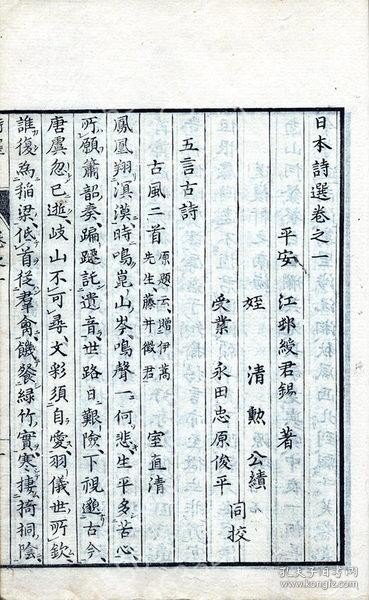 日本詩選卷之一
平安 江邨綬君錫 著
姪 清勲公績
受業 永田忠原俊平 同挍
五言古詩
古風二首 原題云贈伊萬先生藤井徵君 室直清
鳳凰翔溟漠時鳴崑山岑鳴聲一何悲生平多苦心
所願簫韶奏蹁躚託遺音世路日艱險下視邈古今
唐虞忽已逝岐山不可尋文彩須自愛羽儀世所欽
誰復為稻粱低首從羣禽饑餐綠竹實寒棲椅桐陰
孔夫子旧书网